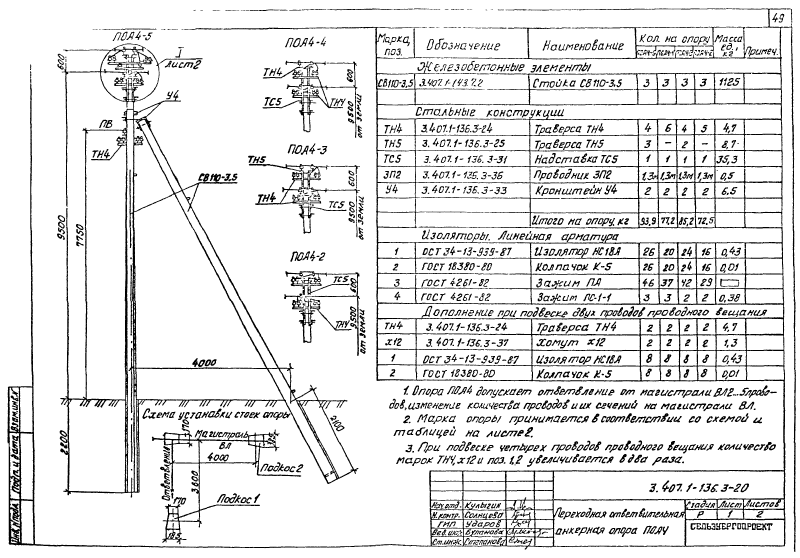 49
ПОА4-5
I
лист 2
600
У4
ПБ
ТН4
СВ110-3,5
9500
7750
4000
2600
2100
ПОА4-4
ТН4
ТС5
ТН4
600
9500
от земли
ПОА4-3
ТН5
ТН4
ТС5
600
9500
от земли
ПОА4-2
ТС5
ТН4
600
9500
от земли
Схема установки стоек опоры
Магистраль
ВЛ
170
4000
Подкос 2
Ответвление
3600
170
Подкос 1
185
Марка, поз. Обозначение Наименование Кол. на опору Масса ед., кг Примеч.
ПОА4-5 ПОА4-4 ПОА4-3 ПОА4-2
Железобетонные элементы
СВ110-3,5 3.407.1-143.7.2 Стойка СВ110-3,5 3 3 3 3 1125
Стальные конструкции
ТН4 3.407.1-136.3-24 Траверса ТН4 4 6 4 5 4,7
ТН5 3.407.1-136.3-25 Траверса ТН5 3 - 2 - 8,7
ТС5 3.407.1-136.3-31 Надставка ТС5 1 1 1 1 35,3
ЗП2 3.407.1-136.3-36 Проводник ЗП2 1,3м 1,3м 1,3м 1,3м 0,5
У4 3.407.1-136.3-33 Кронштейн У4 2 2 2 2 6,5
Итого на опору, кг 93,9 77,2 85,2 72,5
Изоляторы. Линейная арматура
1 ОСТ 34-13-939-87 Изолятор НС18А 26 20 24 16 0,43
2 ГОСТ 18380-80 Колпачок К-5 26 20 24 16 0,01
3 ГОСТ 4261-82 Зажим ПА 46 37 42 29
4 ГОСТ 4261-82 Зажим ПС-1-1 3 3 2 2 0,38
Дополнение при подвеске двух проводов проводного вещания
ТН4 3.407.1-136.3-24 Траверса ТН4 2 2 2 2 4,7
Х12 3.407.1-136.3-37 Хомут Х12 2 2 2 2 1,3
1 ОСТ 34-13-939-87 Изолятор НС18А 8 8 8 8 0,43
2 ГОСТ 18380-80 Колпачок К-5 8 8 8 8 0,01
1. Опора ПОА4 допускает ответвление от магистрали ВЛ 2...5 прово-
дов, изменение количества проводов и их сечений на магистрали ВЛ.
2. Марка опоры принимается в соответствии со схемой и
таблицей на листе 2.
3. При подвеске четырех проводов проводного вещания количество
марок ТН4, х12 и поз. 1,2 увеличивается в два раза.
3.407.1-136.3-20
Нач.отд. Кулыгин
Н.контр. Солнцева
ГИП Ударов
Вед.инж. Буланова
Ст.инж. Степанова
Переходная ответвительная
анкерная опора ПОА4
Стадия Лист Листов
Р 1 2
СЕЛЬЭНЕРГОПРОЕКТ
Инв.№подл. Подп. и дата Взам.инв.№